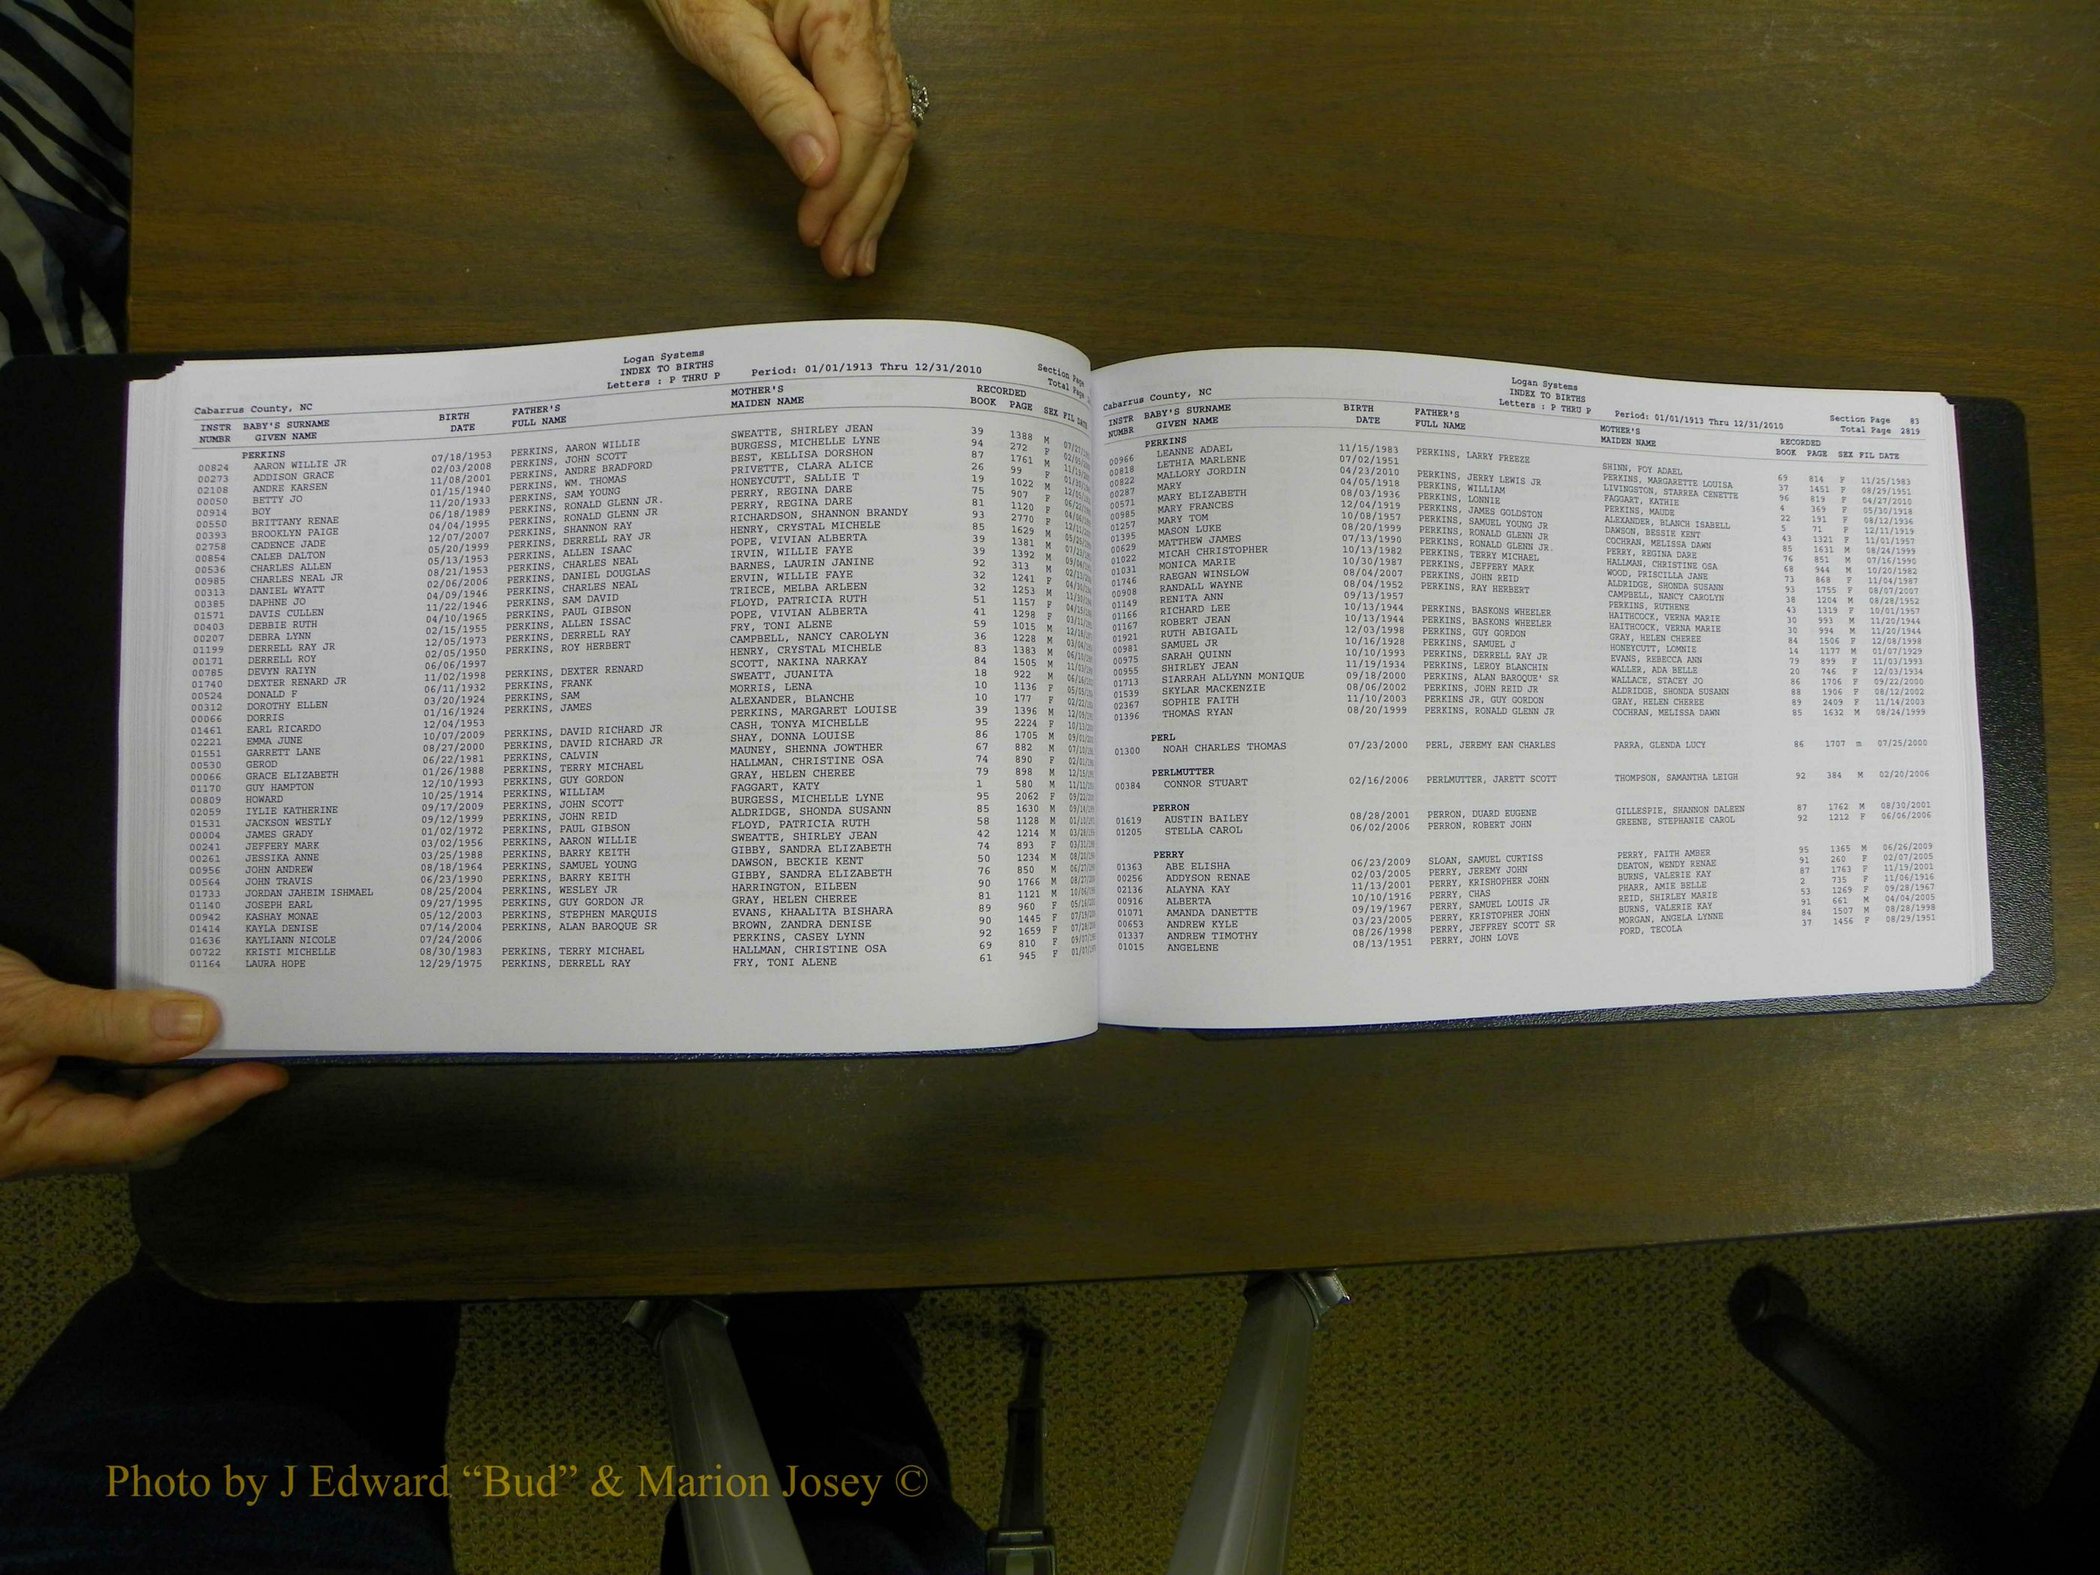 Logan Systems
INDEX TO BIRTHS
Letters : P THRU P Period: 01/01/1913 Thru 12/31/2010 Section Page
Cabarrus County, NC Total Page
INSTR BABY'S SURNAME BIRTH FATHER'S MOTHER'S RECORDED
NUMBR GIVEN NAME DATE FULL NAME MAIDEN NAME BOOK PAGE SEX FIL DATE
PERKINS
00824 AARON WILLIE JR 07/18/1953 PERKINS, AARON WILLIE SWEATTE, SHIRLEY JEAN 39 1388 M
00273 ADDISON GRACE 02/03/2008 PERKINS, JOHN SCOTT BURGESS, MICHELLE LYNE 94 272 F
02108 ANDRE KARSEN 11/08/2001 PERKINS, ANDRE BRADFORD BEST, KELLISA DORSHON 87 1761 M
00050 BETTY JO 01/15/1940 PERKINS, WM. THOMAS PRIVETTE, CLARA ALICE 26 99 F
00914 BOY 11/20/1933 PERKINS, SAM YOUNG HONEYCUTT, SALLIE T 19 1022 M
00550 BRITTANY RENAE 06/18/1989 PERKINS, RONALD GLENN JR. PERRY, REGINA DARE 75 907 F
00393 BROOKLYN PAIGE 04/04/1995 PERKINS, RONALD GLENN JR PERRY, REGINA DARE 81 1120 F
02758 CADENCE JADE 12/07/2007 PERKINS, SHANNON RAY RICHARDSON, SHANNON BRANDY 93 2770 F
00854 CALEB DALTON 05/20/1999 PERKINS, DERRELL RAY JR HENRY, CRYSTAL MICHELE 85 1629 M
00536 CHARLES ALLEN 05/13/1953 PERKINS, ALLEN ISAAC POPE, VIVIAN ALBERTA 39 1381 M
00985 CHARLES NEAL JR 08/21/1953 PERKINS, CHARLES NEAL IRVIN, WILLIE FAYE 39 1392 M
00313 DANIEL WYATT 02/06/2006 PERKINS, DANIEL DOUGLAS BARNES, LAURIN JANINE 92 313 M
00385 DAPHNE JO 04/09/1946 PERKINS, CHARLES NEAL ERVIN, WILLIE FAYE 32 1241 F
01571 DAVIS CULLEN 11/22/1946 PERKINS, SAM DAVID TRIECE, MELBA ARLEEN 32 1253 M
00403 DEBBIE RUTH 04/10/1965 PERKINS, PAUL GIBSON FLOYD, PATRICIA RUTH 51 1157 F
00207 DEBRA LYNN 02/15/1955 PERKINS, ALLEN ISSAC POPE, VIVIAN ALBERTA 41 1298 F
01199 DERRELL RAY JR 12/05/1973 PERKINS, DERRELL RAY FRY, TONI ALENE 59 1015 M
00171 DERRELL ROY 02/05/1950 PERKINS, ROY HERBERT CAMPBELL, NANCY CAROLYN 36 1228 M
00785 DEVYN RAIYN 06/06/1997 HENRY, CRYSTAL MICHELE 83 1383 M
01740 DEXTER RENARD JR 11/02/1998 PERKINS, DEXTER RENARD SCOTT, NAKINA NARKAY 84 1505 M
00524 DONALD F 06/11/1932 PERKINS, FRANK SWEATT, JUANITA 18 922 M
00312 DOROTHY ELLEN 03/20/1924 PERKINS, SAM MORRIS, LENA 10 1136 F
00066 DORRIS 01/16/1924 PERKINS, JAMES ALEXANDER, BLANCHE 10 177 F
01461 EARL RICARDO 12/04/1953 PERKINS, MARGARET LOUISE 39 1396 M
02221 EMMA JUNE 10/07/2009 PERKINS, DAVID RICHARD JR CASH, TONYA MICHELLE 95 2224 F
01551 GARRETT LANE 08/27/2000 PERKINS, DAVID RICHARD JR SHAY, DONNA LOUISE 86 1705 M
00530 GEROD 06/22/1981 PERKINS, CALVIN MAUNEY, SHENNA JOWTHER 67 882 M
00066 GRACE ELIZABETH 01/26/1988 PERKINS, TERRY MICHAEL HALLMAN, CHRISTINE OSA 74 890 F
01170 GUY HAMPTON 12/10/1993 PERKINS, GUY GORDON GRAY, HELEN CHEREE 79 898 M
00809 HOWARD 10/25/1914 PERKINS, WILLIAM FAGGART, KATY 1 580 M
02059 IYLIE KATHERINE 09/17/2009 PERKINS, JOHN SCOTT BURGESS, MICHELLE LYNE 95 2062 F
01531 JACKSON WESTLY 09/12/1999 PERKINS, JOHN REID ALDRIDGE, SHONDA SUSANN 85 1630 M
00004 JAMES GRADY 01/02/1972 PERKINS, PAUL GIBSON FLOYD, PATRICIA RUTH 58 1128 M
00241 JEFFERY MARK 03/02/1956 PERKINS, AARON WILLIE SWEATTE, SHIRLEY JEAN 42 1214 M
00261 JESSIKA ANNE 03/25/1988 PERKINS, BARRY KEITH GIBBY, SANDRA ELIZABETH 74 893 F
00956 JOHN ANDREW 08/18/1964 PERKINS, SAMUEL YOUNG DAWSON, BECKIE KENT 50 1234 M
00564 JOHN TRAVIS 06/23/1990 PERKINS, BARRY KEITH GIBBY, SANDRA ELIZABETH 76 850 M
01733 JORDAN JAHEIM ISHMAEL 08/25/2004 PERKINS, WESLEY JR HARRINGTON, EILEEN 90 1766 M
01140 JOSEPH EARL 09/27/1995 PERKINS, GUY GORDON JR GRAY, HELEN CHEREE 81 1121 M
00942 KASHAY MONAE 05/12/2003 PERKINS, STEPHEN MARQUIS EVANS, KHAALITA BISHARA 89 960 F
01414 KAYLA DENISE 07/14/2004 PERKINS, ALAN BAROQUE SR BROWN, ZANDRA DENISE 90 1445 F
01636 KAYLIANN NICOLE 07/24/2006 PERKINS, CASEY LYNN 92 1659 F
00722 KRISTI MICHELLE 08/30/1983 PERKINS, TERRY MICHAEL HALLMAN, CHRISTINE OSA 69 810 F
01164 LAURA HOPE 12/29/1975 PERKINS, DERRELL RAY FRY, TONI ALENE 61 945 F
Logan Systems
INDEX TO BIRTHS
Letters : P THRU P Period: 01/01/1913 Thru 12/31/2010 Section Page 83
Cabarrus County, NC Total Page 2819
INSTR BABY'S SURNAME BIRTH FATHER'S MOTHER'S RECORDED
NUMBR GIVEN NAME DATE FULL NAME MAIDEN NAME BOOK PAGE SEX FIL DATE
PERKINS
00966 LEANNE ADAEL 11/15/1983 PERKINS, LARRY FREEZE SHINN, FOY ADAEL 69 814 F 11/25/1983
00818 LETHIA MARLENE 07/02/1951 PERKINS, MARGARETTE LOUISA 37 1451 F 08/29/1951
00822 MALLORY JORDIN 04/23/2010 PERKINS, JERRY LEWIS JR LIVINGSTON, STARREA CENETTE 96 819 F 04/27/2010
00287 MARY 04/05/1918 PERKINS, WILLIAM FAGGART, KATHIE 4 369 F 05/30/1918
00571 MARY ELIZABETH 08/03/1936 PERKINS, LONNIE PERKINS, MAUDE 22 191 F 08/12/1936
00985 MARY FRANCES 12/04/1919 PERKINS, JAMES GOLDSTON ALEXANDER, BLANCH ISABELL 5 71 F 12/11/1919
01257 MARY TOM 10/08/1957 PERKINS, SAMUEL YOUNG JR DAWSON, BESSIE KENT 43 1321 F 11/01/1957
01395 MASON LUKE 08/20/1999 PERKINS, RONALD GLENN JR COCHRAN, MELISSA DAWN 85 1631 M 08/24/1999
00629 MATTHEW JAMES 07/13/1990 PERKINS, RONALD GLENN JR. PERRY, REGINA DARE 76 851 M 07/16/1990
01022 MICAH CHRISTOPHER 10/13/1982 PERKINS, TERRY MICHAEL HALLMAN, CHRISTINE OSA 68 944 M 10/20/1982
01031 MONICA MARIE 10/30/1987 PERKINS, JEFFERY MARK WOOD, PRISCILLA JANE 73 868 F 11/04/1987
01746 RAEGAN WINSLOW 08/04/2007 PERKINS, JOHN REID ALDRIDGE, SHONDA SUSANN 93 1755 F 08/07/2007
00908 RANDALL WAYNE 08/04/1952 PERKINS, RAY HERBERT CAMPBELL, NANCY CAROLYN 38 1204 M 08/28/1952
01149 RENITA ANN 09/13/1957 PERKINS, RUTHENE 43 1319 F 10/01/1957
01166 RICHARD LEE 10/13/1944 PERKINS, BASKONS WHEELER HAITHCOCK, VERNA MARIE 30 993 M 11/20/1944
01167 ROBERT JEAN 10/13/1944 PERKINS, BASKONS WHEELER HAITHCOCK, VERNA MARIE 30 994 M 11/20/1944
01921 RUTH ABIGAIL 12/03/1998 PERKINS, GUY GORDON GRAY, HELEN CHEREE 84 1506 F 12/08/1998
00981 SAMUEL JR 10/16/1928 PERKINS, SAMUEL J HONEYCUTT, LOMNIE 14 1177 M 01/07/1929
00975 SARAH QUINN 10/10/1993 PERKINS, DERRELL RAY JR EVANS, REBECCA ANN 79 899 F 11/03/1993
00955 SHIRLEY JEAN 11/19/1934 PERKINS, LEROY BLANCHIN WALLER, ADA BELLE 20 746 F 12/03/1934
01713 SIARRAH ALLYNN MONIQUE 09/18/2000 PERKINS, ALAN BAROQUE' SR WALLACE, STACEY JO 86 1706 F 09/22/2000
01539 SKYLAR MACKENZIE 08/06/2002 PERKINS, JOHN REID JR ALDRIDGE, SHONDA SUSANN 88 1906 F 08/12/2002
02367 SOPHIE FAITH 11/10/2003 PERKINS JR, GUY GORDON GRAY, HELEN CHEREE 89 2409 F 11/14/2003
01396 THOMAS RYAN 08/20/1999 PERKINS, RONALD GLENN JR COCHRAN, MELISSA DAWN 85 1632 M 08/24/1999
PERL
01300 NOAH CHARLES THOMAS 07/23/2000 PERL, JEREMY EAN CHARLES PARRA, GLENDA LUCY 86 1707 m 07/25/2000
PERLMUTTER
00384 CONNOR STUART 02/16/2006 PERLMUTTER, JARETT SCOTT THOMPSON, SAMANTHA LEIGH 92 384 M 02/20/2006
PERRON
01619 AUSTIN BAILEY 08/28/2001 PERRON, DUARD EUGENE GILLESPIE, SHANNON DALEEN 87 1762 M 08/30/2001
01205 STELLA CAROL 06/02/2006 PERRON, ROBERT JOHN GREENE, STEPHANIE CAROL 92 1212 F 06/06/2006
PERRY
01363 ABE ELISHA 06/23/2009 SLOAN, SAMUEL CURTISS PERRY, FAITH AMBER 95 1365 M 06/26/2009
00256 ADDYSON RENAE 02/03/2005 PERRY, JEREMY JOHN DEATON, WENDY RENAE 91 260 F 02/07/2005
02136 ALAYNA KAY 11/13/2001 PERRY, KRISHOPHER JOHN BURNS, VALERIE KAY 87 1763 F 11/19/2001
00916 ALBERTA 10/10/1916 PERRY, CHAS PHARR, AMIE BELLE 2 735 F 11/06/1916
01071 AMANDA DANETTE 09/19/1967 PERRY, SAMUEL LOUIS JR REID, SHIRLEY MARIE 53 1269 F 09/28/1967
00653 ANDREW KYLE 03/23/2005 PERRY, KRISTOPHER JOHN BURNS, VALERIE KAY 91 661 M 04/04/2005
01337 ANDREW TIMOTHY 08/26/1998 PERRY, JEFFREY SCOTT SR MORGAN, ANGELA LYNNE 84 1507 M 08/28/1998
01015 ANGELENE 08/13/1951 PERRY, JOHN LOVE FORD, TECOLA 37 1456 F 08/29/1951
Photo by J Edward “Bud” & Marion Josey ©